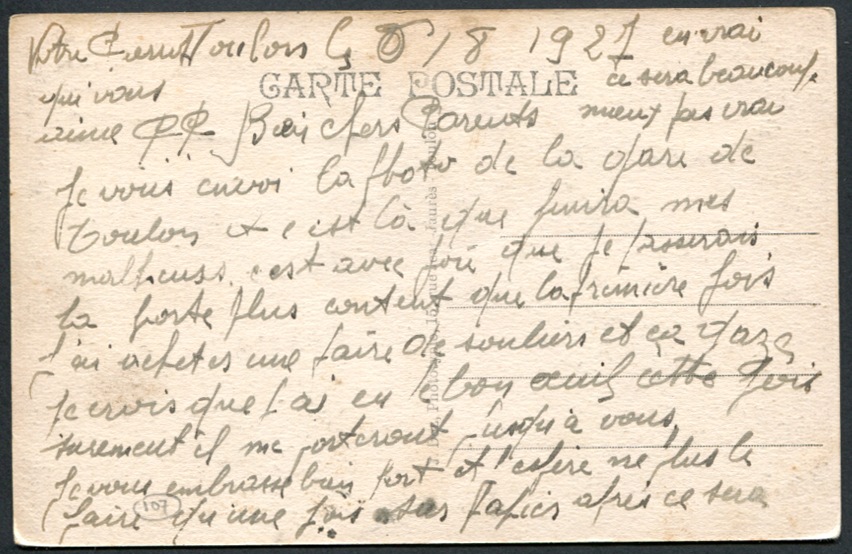 Toulon le 6/8 1927
CARTE POSTALE
Bien chers Parents
Je vous envoi la photo de la gare de
Toulon et c est là que finira mes
malheurs. c est avec joie que je passerais
la porte plus content que la première fois
J'ai acheter une paire de souliers et ça gaze
Je crois que j ai eu bon oeuil cette fois
surement il me porteront jusqu'à vous,
Je vous embrasse bien fort et l'espère ne plus le
faire qu'une fois sur papier après ce sera
107
en vrai
ce sera beaucoup
mieux pas vrai
Votre
qui vous
aime